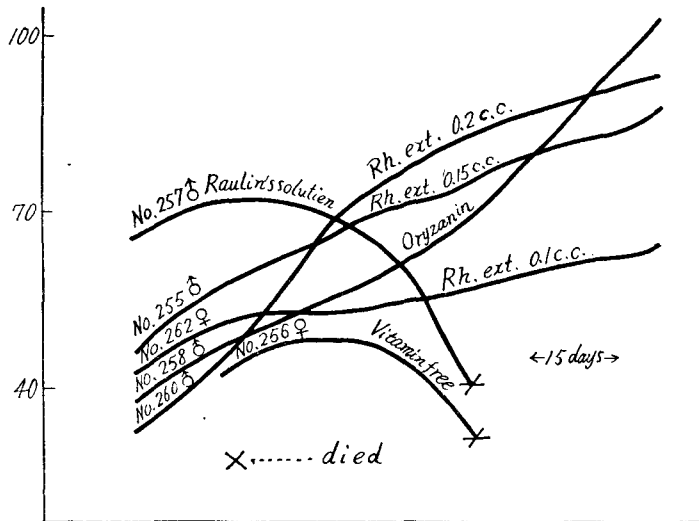 100
70
40
No. 257 ♂ Raulin's solutien
No. 255 ♂
No. 262 ♀
No. 258 ♂
No. 260 ♂
No. 256 ♀
Rh. ext. 0.2 c.c.
Rh. ext. 0.15 c.c.
Oryzanin
Rh. ext. 0.1 c.c.
Vitamin free
←15 days→
×------ died